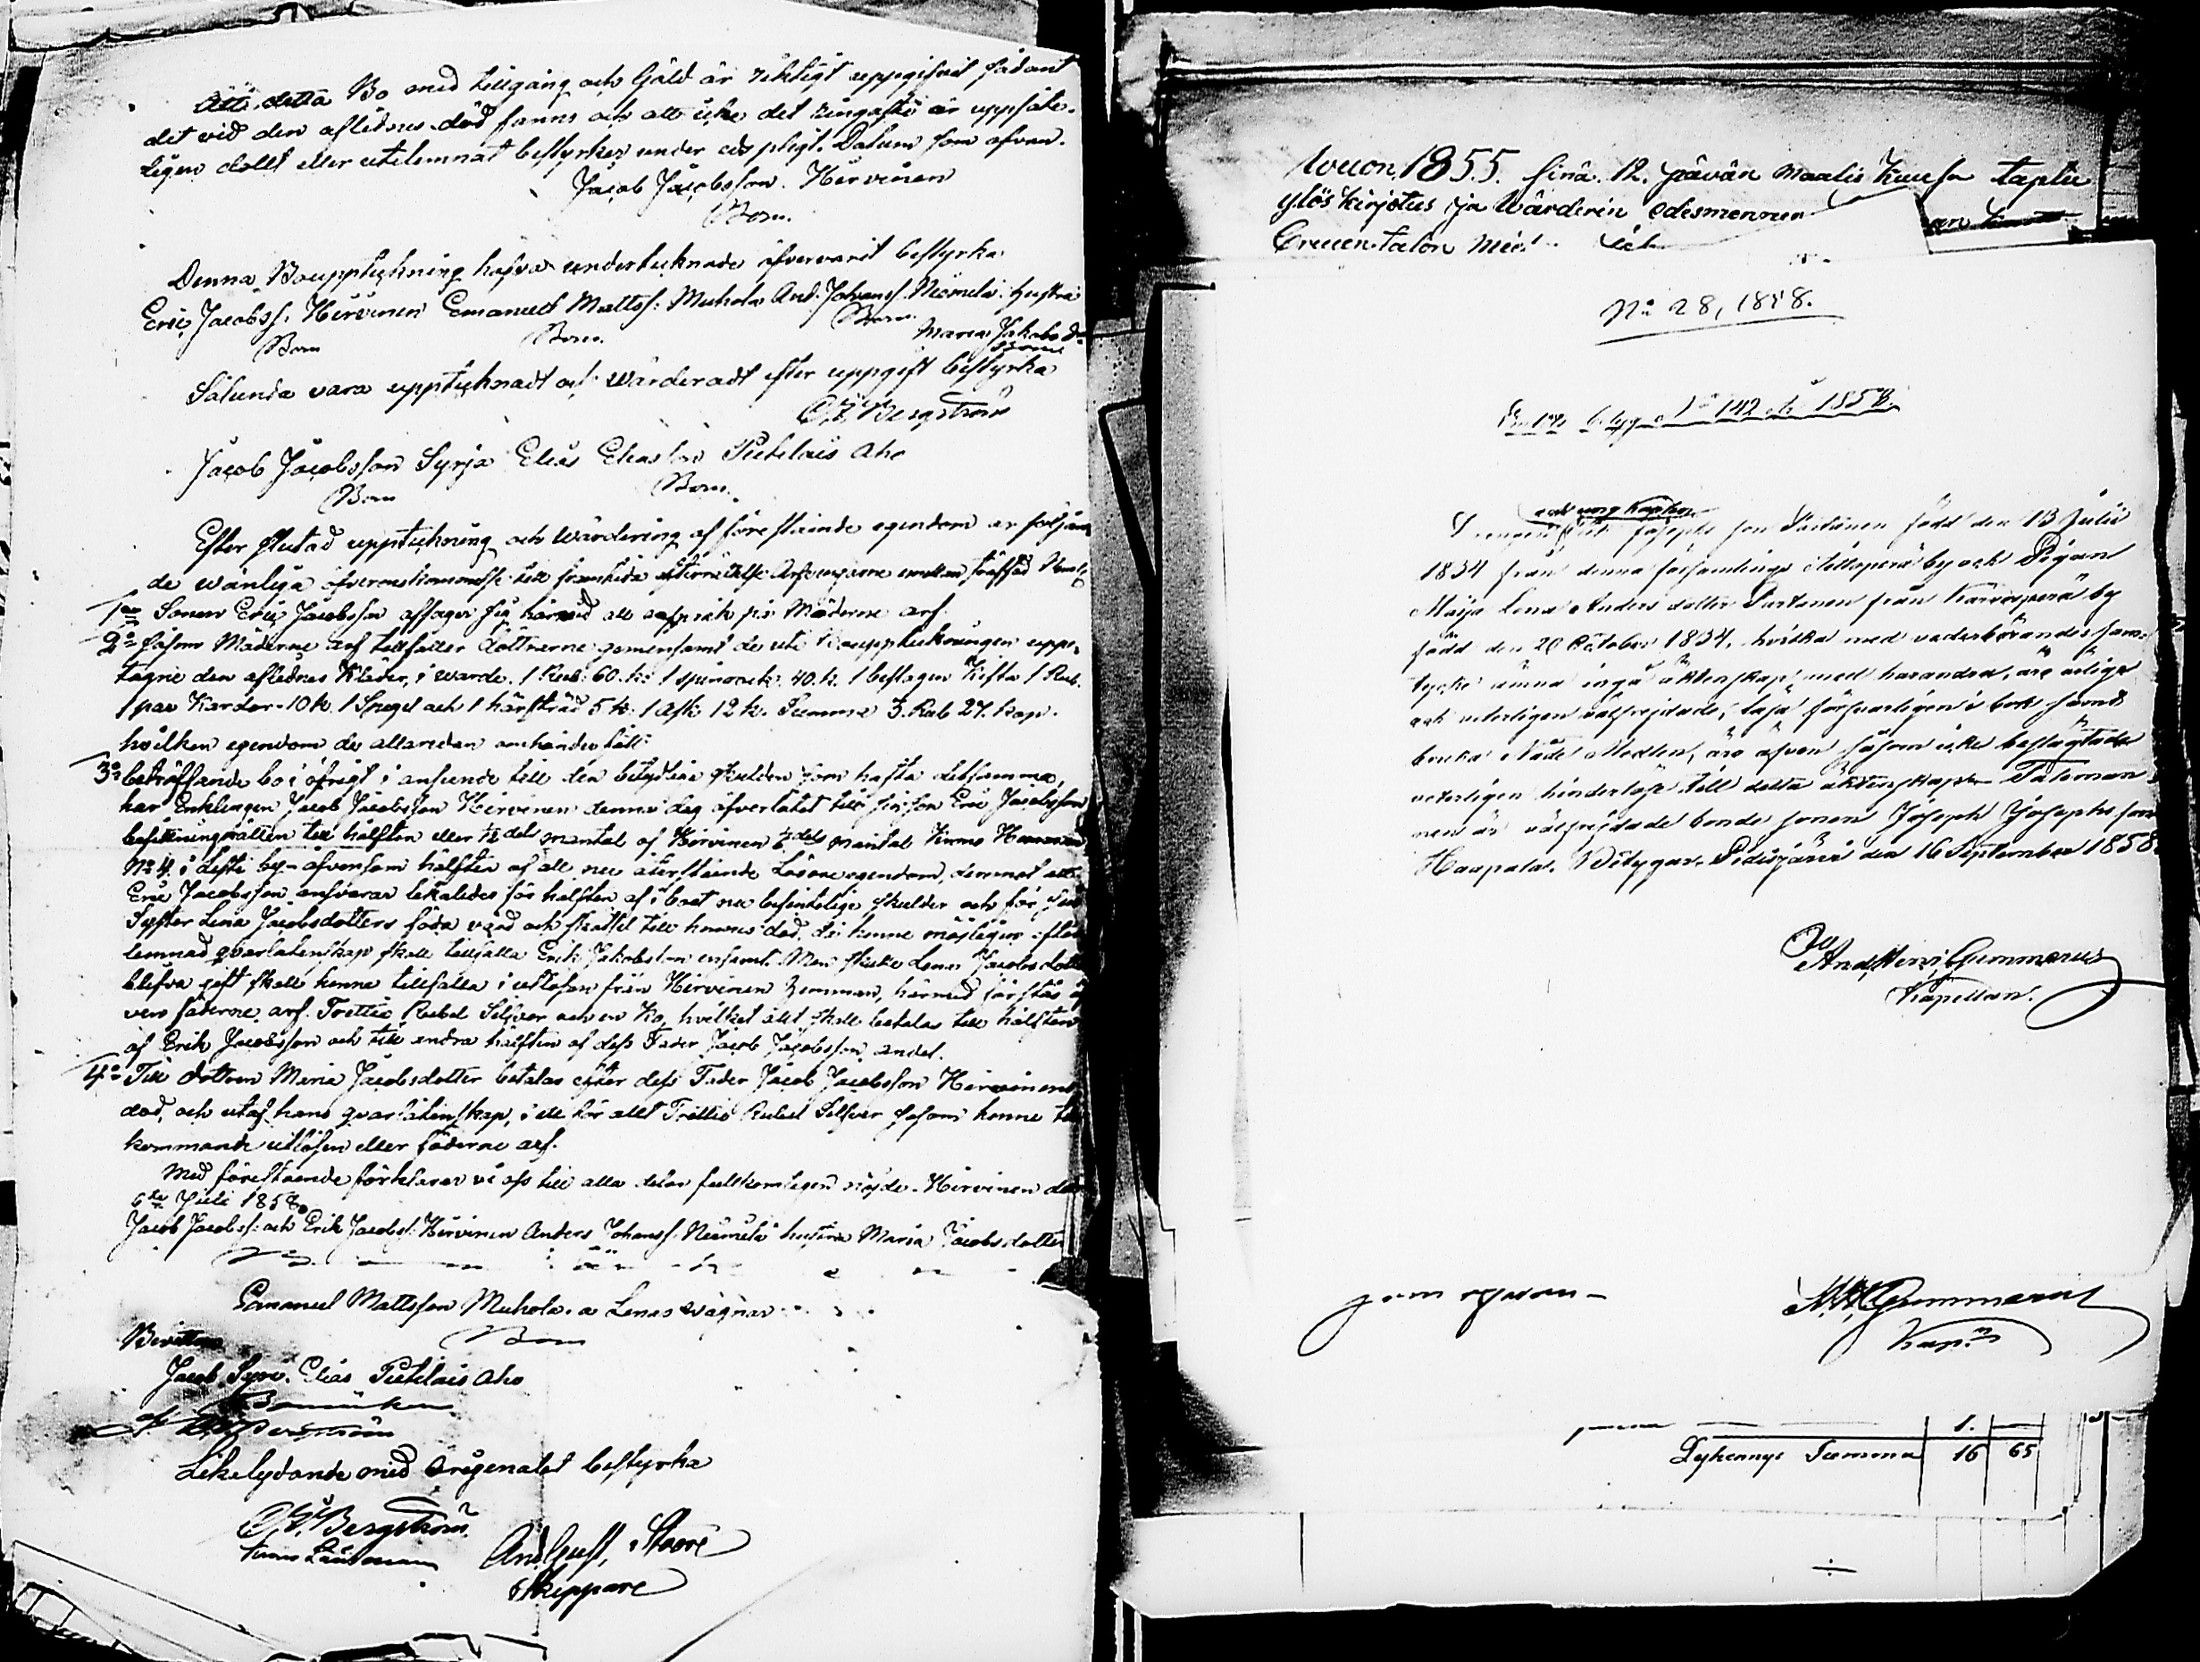 Att detta Bo med tillgång och Gäld är riktigt uppgifvit sådant
det vid den aflidnes död fanns och att icke det ringaste är uppsåte-
ligen döllt eller utelemnat bestyrkes under eds pligt. Datum som ofvan.
Jacob Jacobsson Hirvinen
Bom.
Denna Boupptekning hafva undertecknade öfvervarit bestyrka
Eric Jacobss. Hirvinen Emanuel Mattss: Muhola And. Johanss. Niemelä hustru
Bom Bom. Bom. Maria Jakobsd.
Sålunda vara upptecknadt och Wärderadt efter uppgift bestyrka
C. G. Bergström
Jacob Jacobsson Syrja Elias Eliasson Pietilais Aho
Bom Bom.
Efter slutad uppteckning och Wärdering af föreståinde egendom är följan-
de wänliga öfverenskommelse till framtida efterrättelse Arfvingarne emellan träffad
1:o Sonen Eric Jacobsson afsäger sig härmed all anspråk på Möderne arf.
2:o Såsom Möderne arf tillfaller döttrarne gemensamt de uti Bouppteckningen upp-
tagne den aflidnes Kläder, i wärde 1 Rub. 60. k: 1 spinrock 40. k. 1 beslagen Kista 1 Rub.
1 par Kardor 10 k 1 Spegel och 1 5 k. 1 Ask 12 k. Summa 3. Rub 27. kop.
hvilken egendom de allaredan omhänderhått.
3:o beträffande bo i öfrigt i anseende till den betydliga skulden som häfta detsamma,
har Enklingen Jacob Jacobsson Hirvinen denna dag öfverlåtit till sin son Eric Jacobsson
besittningsrätten till hälften eller dels mantal af Hirvinen dels mantal Krono Hemman
No 4 i by - äfvensom hälften af all nu återstående Lösöre egendom, deremot att
Eric Jacobsson ansvarar likaledes för hälften af i boet nu befintelige skulder och för sin
Syster Lena Jacobsdotters föda vård och skötsel till hennes död, då henne möjligen efter-
lemnad qvarlåtenskap skall tillfalla Erik Jakobsson ensamt. Men skulle Lena Jacobsdotter
blifva gift skall henne tillfalla i utlösen från Hirvinen hemman, härmed förstås äf-
ven fäderne arf. Trettio Rubel Silfver och en Ko, hvilket allt skall betalas till hälften
af Erik Jacobsson och till andra hälften af dess Fader Jacob Jacobsson andel.
4:o Till dottren Maria Jacobsdotter betalas efter dess Fader Jacob Jacobsson Hirvinens
död, och utaf hans qvarlåtenskap, i ett för allt Trettio Rubel Silfver såsom henne till-
kommande utlösen eller fäderne arf.
Med förestående förklarar vi oss till alla delar fullkomligen nöjde. Hirvinen den
6te Juli 1858.
Jacob Jacobss: och Erik Jacobss: Hirvinen Anders Johanss. Niemelä hustru Maria Jacobsdotter
Emanuel Mattsson Muhola. a Lenas wägnar
Bom
Bevittna
Jacob Syrj. Elias Pietilais Aho
Bomärken
C G Bergström
Likelydande med Originalet bestyrka
C. G. Bergström And Gust, Stoore
Länsman Skeppare
Wuon. 1855. sinä. 12. päivän Maalis Kuussa
ylöskirjotus ja Wärderin edesmennen
Creuen talon
No 28, 1858.
No 142 1858.
Josephs son Partanen född den 13 Julii
1834 från denna församlings by och Pigan
Maija Lena Anders dotter Partanen från by
född den 20 October 1834, hvilka med vederbörandes sam-
tycke ämna ingå äktenskap med hvarandra, äro ärlige
och veterligen välfrejdade, läsa försvarligen i bok samt
bruka Nåde Medlen, äro äfven såsom icke beslägtade
veterligen hinderlöse till detta äktenskap. Talsman-
nen är välfrejdade bonde sonen Joseph Josephsson
Haapala. Betygar. Pidisjärvi den 16 September 1858.
And. Henr. Gummerus
Kapellan.
A H Gummerus
Kap:n
1.
Summa 16 65